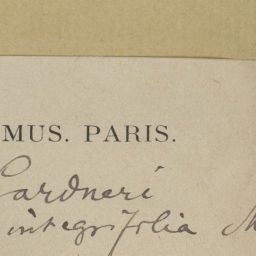 MUS. PARIS.
Gardneri
integrifolia M